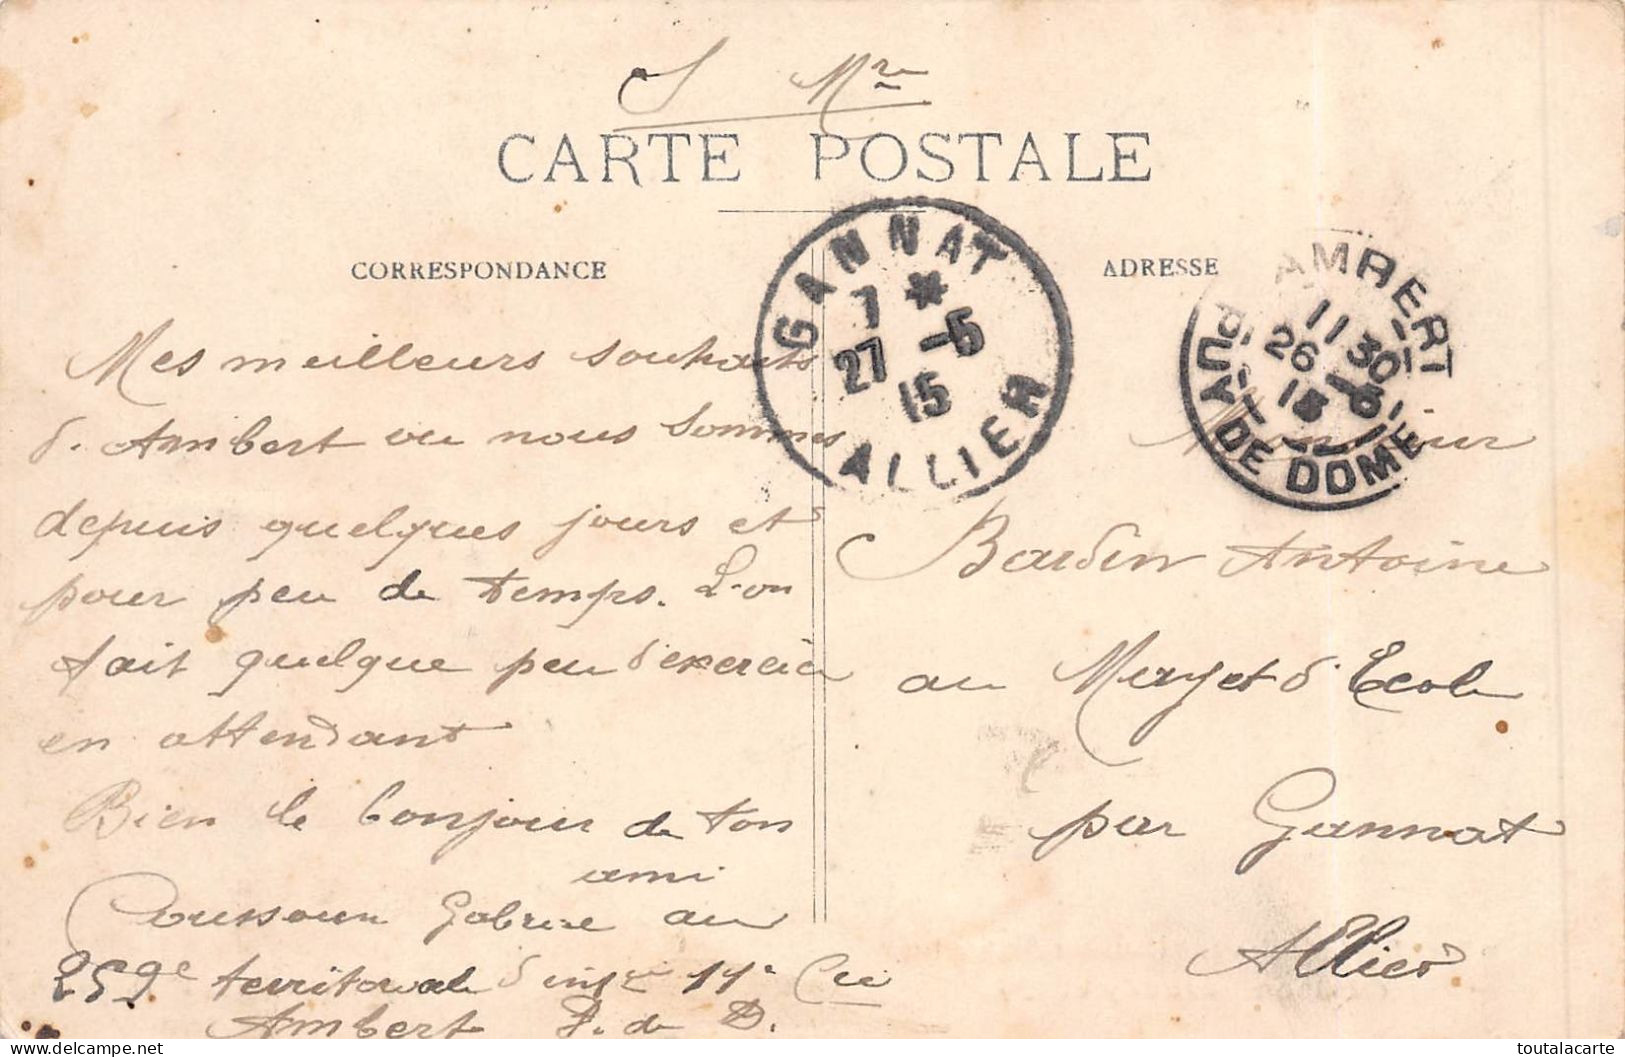 S Mre
CARTE POSTALE
CORRESPONDANCE
ADRESSE
GANNAT
7 *
27 -5
15
ALLIER
AMBERT
11 30
26 -5
15
PUY-DE-DOME
Mes meilleurs souhaits
d'Ambert ou nous sommes
depuis quelques jours et
pour peu de temps. L'on
fait quelque peu d'exercice
en attendant
Bien le bonjour de ton
ami
Gabriel au
259e territorial d'infrie 11e Cie
Ambert P. de D.
Monsieur
Bardin Antoine
au Mayet d'Ecole
par Gannat
Allier
toutalacarte